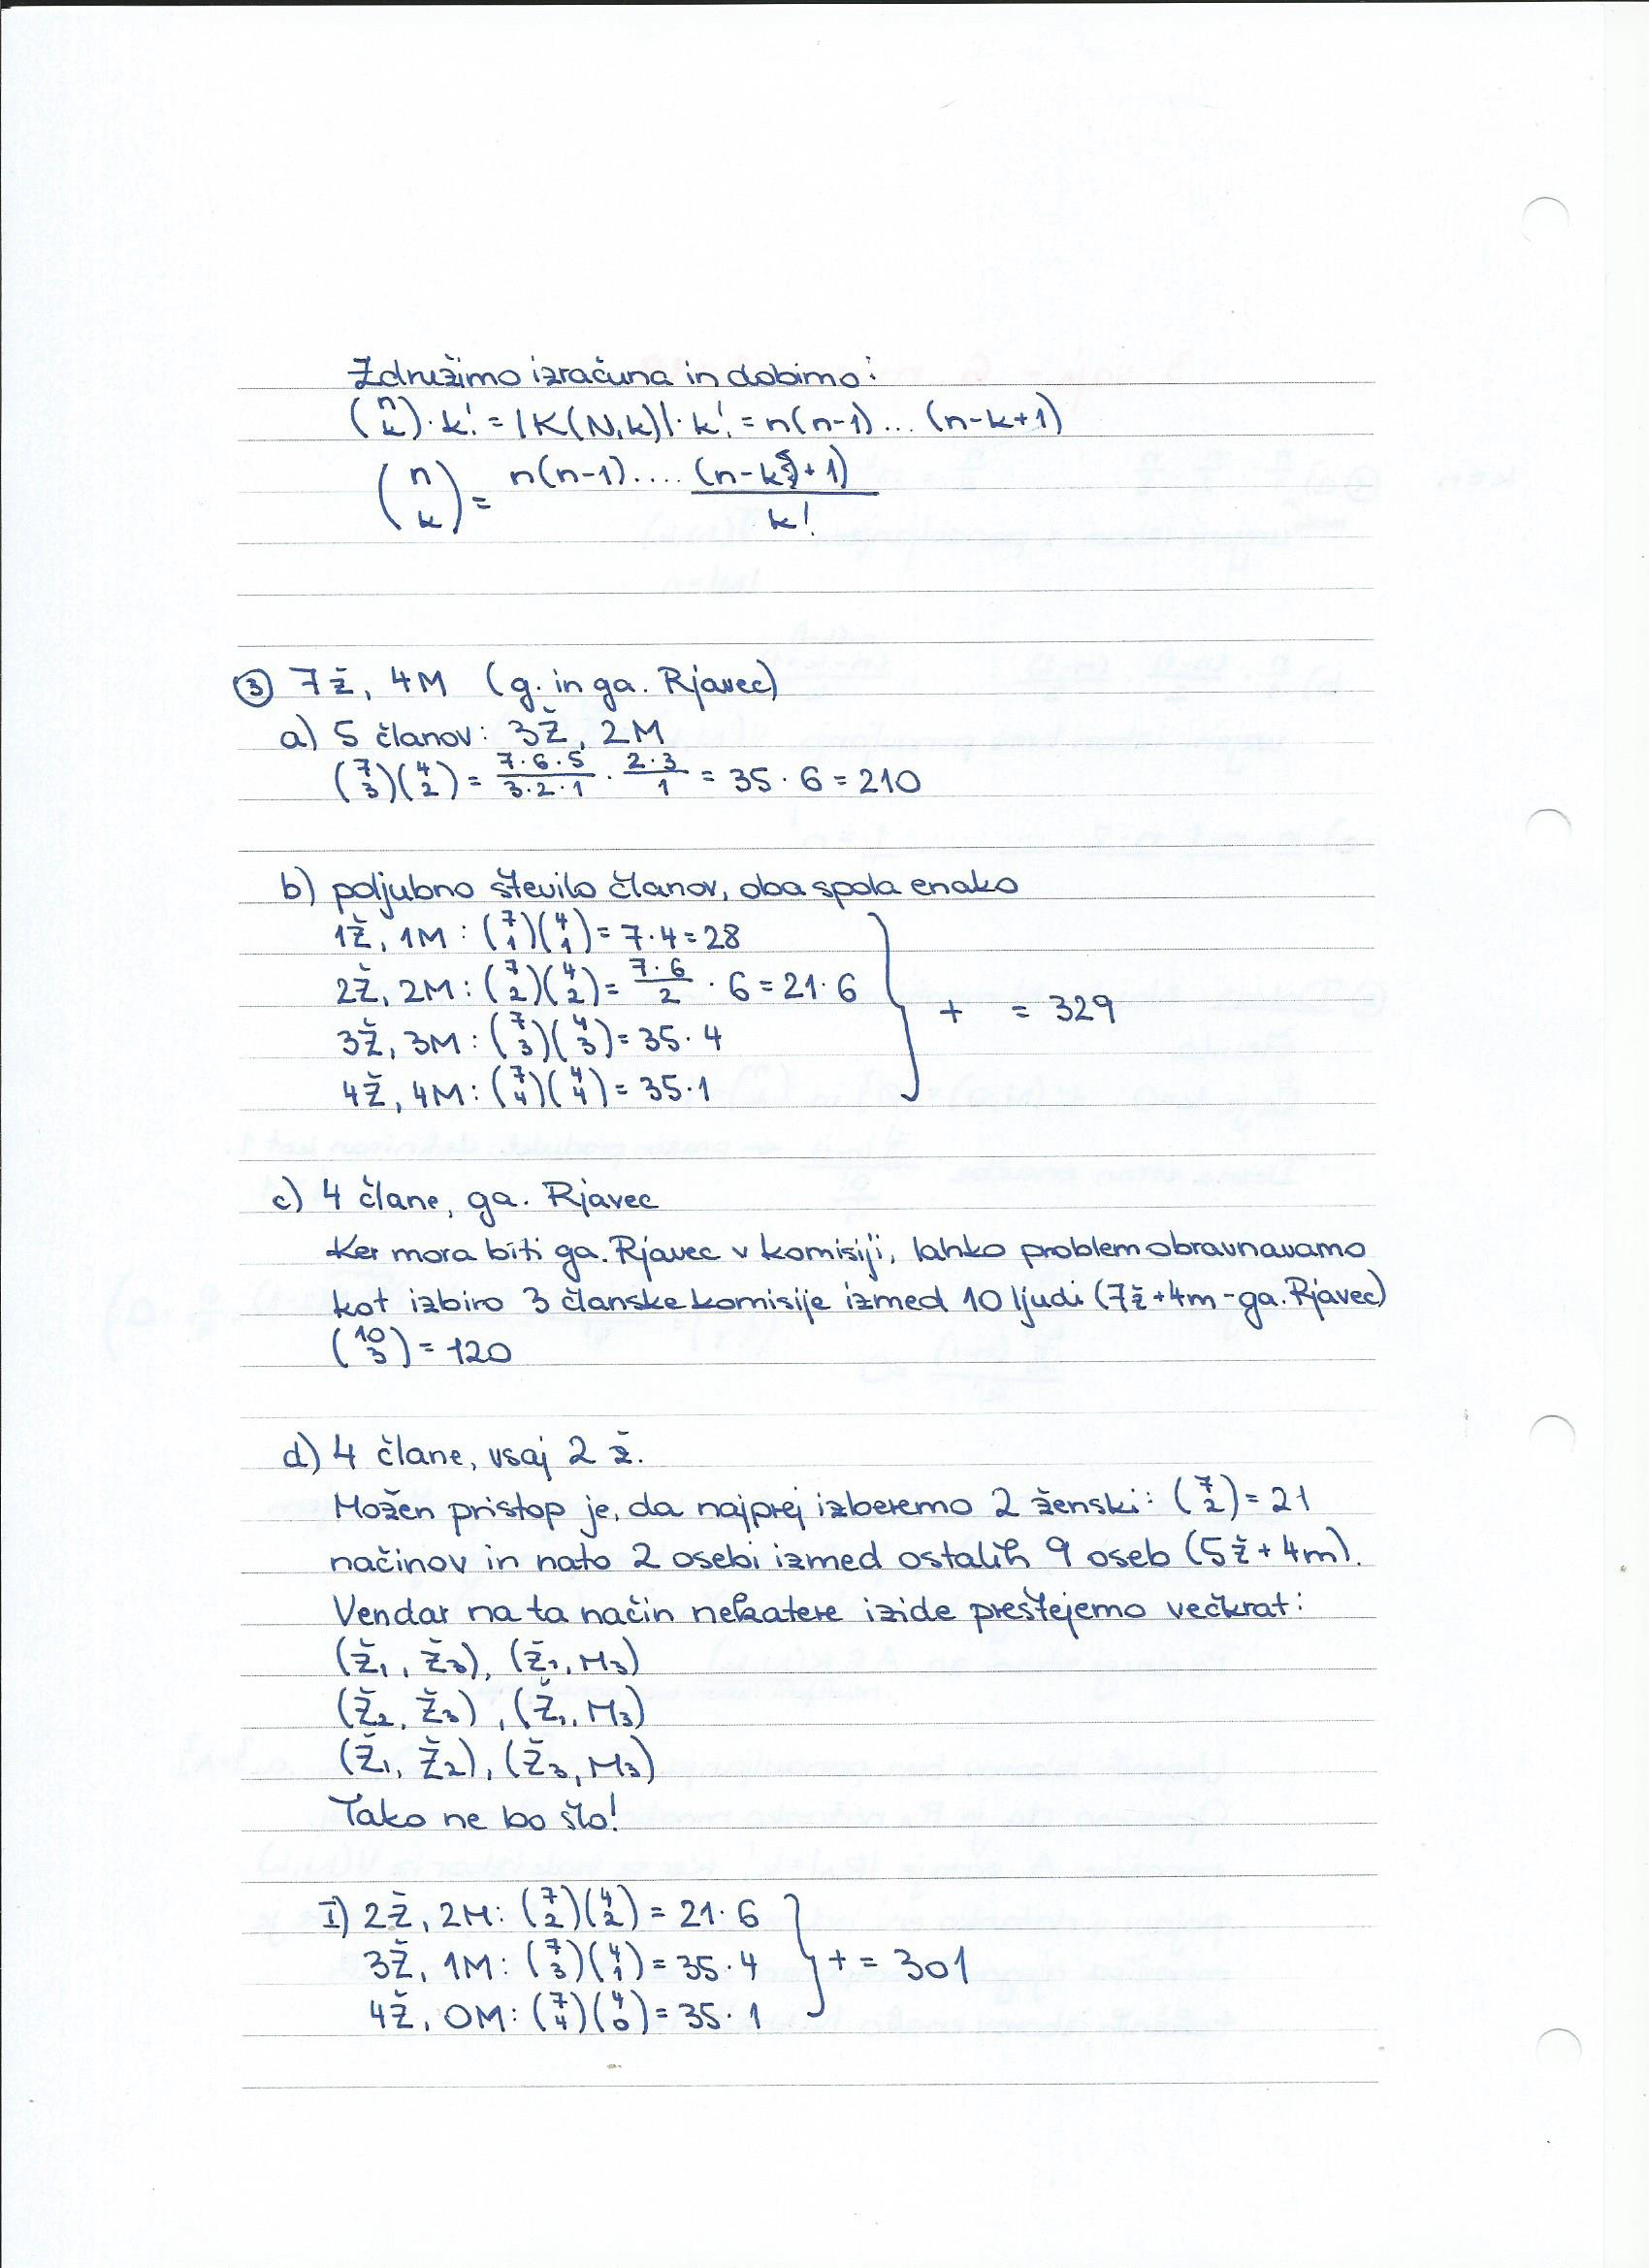 Združimo izračuna in dobimo:
(n k)·k! = |K(N,k)|·k! = n(n-1)... (n-k+1)
(n k) = n(n-1).... (n-k+1) / k!
③ 7ž, 4M (g. in ga. Rjavec)
a) 5 članov: 3Ž, 2M
(7 3)(4 2) = 7·6·5 / 3·2·1 · 2·3 / 1 = 35·6 = 210
b) poljubno število članov, oba spola enako
1Ž, 1M: (7 1)(4 1) = 7·4 = 28
2Ž, 2M: (7 2)(4 2) = 7·6 / 2 · 6 = 21·6
+ = 329
3Ž, 3M: (7 3)(4 3) = 35·4
4Ž, 4M: (7 4)(4 4) = 35·1
c) 4 člane, ga. Rjavec
Ker mora biti ga. Rjavec v komisiji, lahko problem obravnavamo
kot izbiro 3 članske komisije izmed 10 ljudi (7ž+4m-ga. Rjavec)
(10 3) = 120
d) 4 člane, vsaj 2 ž.
Možen pristop je, da najprej izberemo 2 ženski: (7 2) = 21
načinov in nato 2 osebi izmed ostalih 9 oseb (5ž+4m).
Vendar na ta način nekatere izide preštejemo večkrat:
(Ž₁, Ž₃), (Ž₂, M₃)
(Ž₂, Ž₃), (Ž₁, M₃)
(Ž₁, Ž₂), (Ž₃, M₃)
Tako ne bo šlo!
I) 2Ž, 2M: (7 2)(4 2) = 21·6
3Ž, 1M: (7 3)(4 1) = 35·4 + = 301
4Ž, 0M: (7 4)(4 0) = 35·1